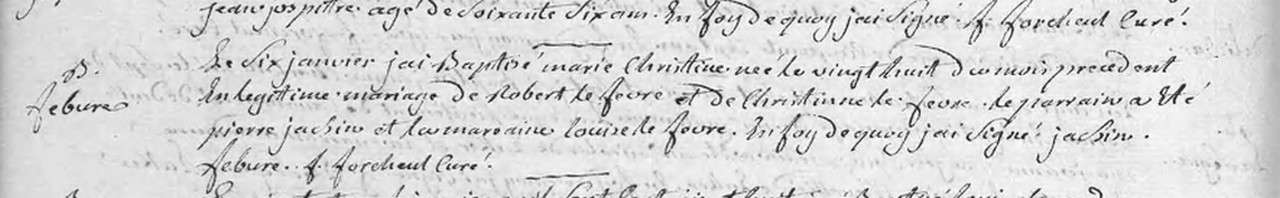 jean jos pitre. agé de Soixante Six ans. En foy de quoy jai Signé. f. forcheul Curé.
B.
febure
Le Six janvier jai Baptisé marie Christine neé le vingt huit du mois precedent
En legitime mariage de Robert le fevre et de Christinne le fevre. le parrain a Eté
pierre jachin et la maraine louise le fevre. En foy de quoy jai Signé. jachin.
febure. f. forcheul Curé.